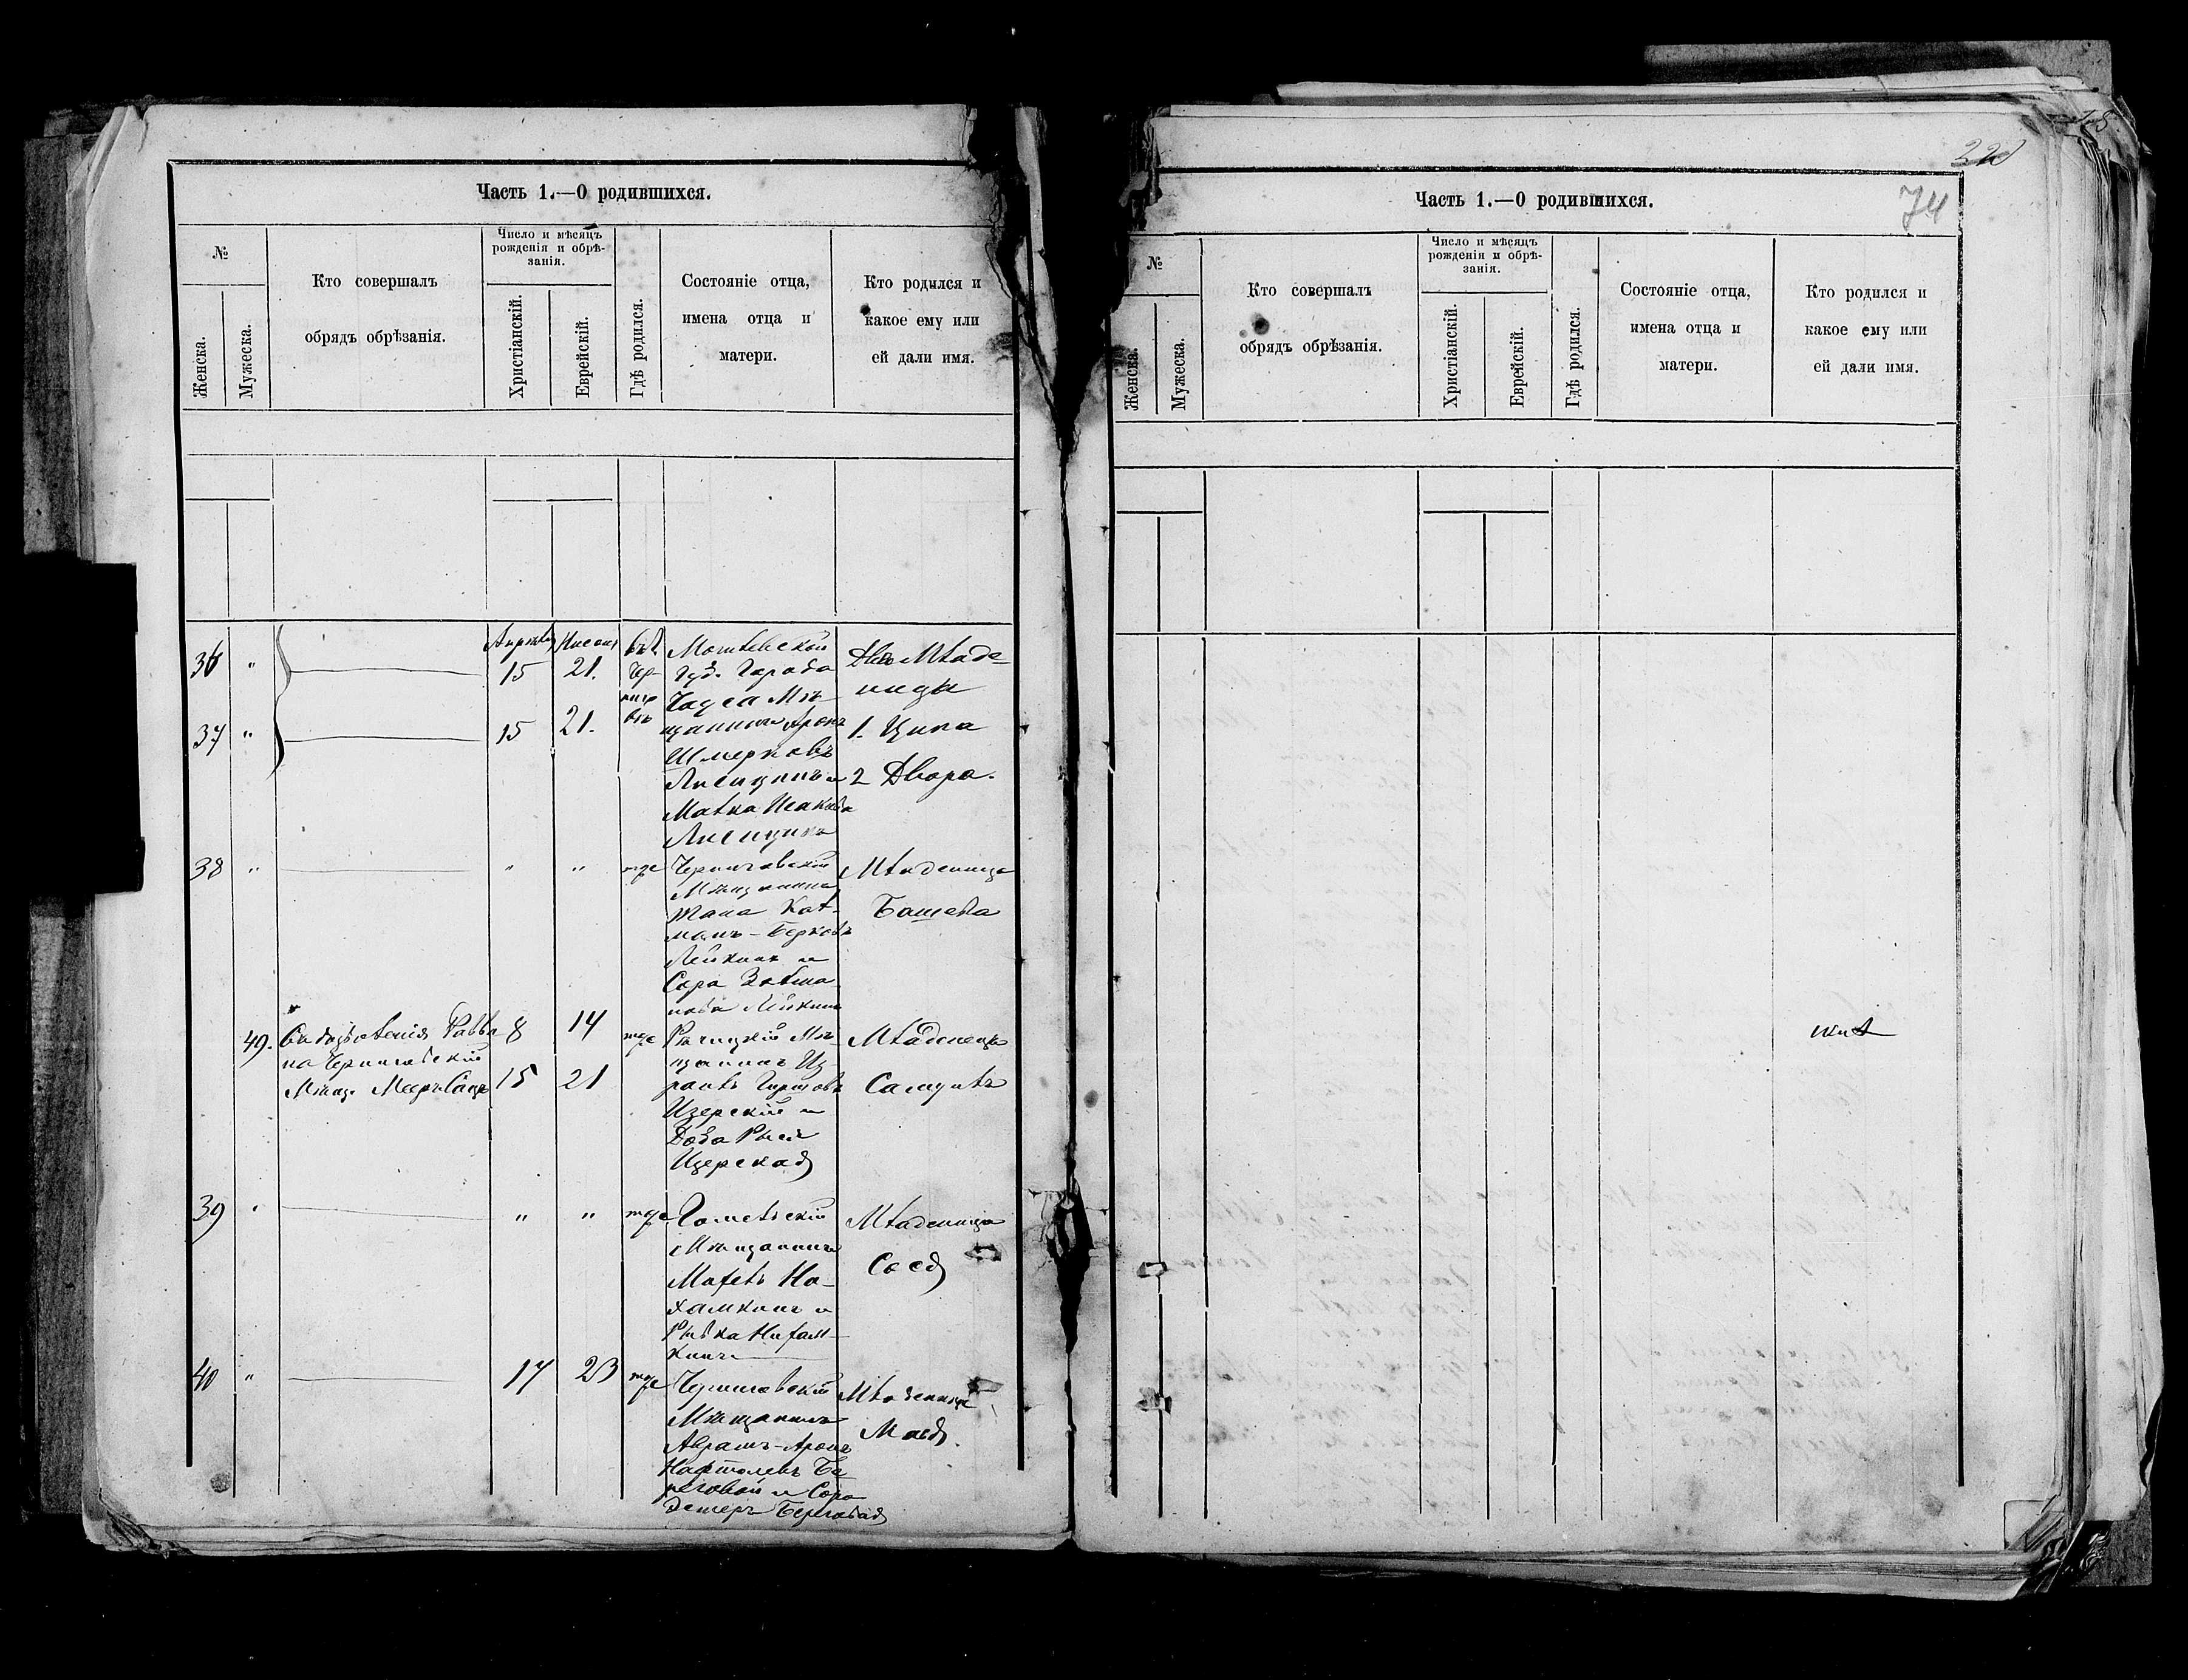 Часть 1.—О родившихся.
№
Женска.
Мужеска.
Кто совершалъ
обрядъ обрѣзанія.
Число и мѣсяцъ
рожденія и обрѣ-
занія.
Христіанскій.
Еврейскій.
Гдѣ родился.
Состояніе отца,
имена отца и
матери.
Кто родился и
какое ему или
ей дали имя.
36 " Апрѣля 15 Нисанъ 21. въ г. Чер-
ниго
въ
Могилевской
Губ. Города
Чауса Мѣ-
щанинъ Аронъ
Шмерковъ
Лисицинъ и
Малка Исакова
Лисицина
Двѣ Младе-
ницы
37 " 15 21.
1. Ципа
2 Двора.
38 " " " тоже
Черниговскій
Мѣщанинъ
Кал-
манъ-Берковъ
Лейкинъ и
Сора Залма-
нова Лейкина
Младеница
Башева
49. 8 14 тоже
Раввн
на Черниговскій
Мѣщ. Мееръ
15 21
Рѣчицкій Мѣ-
щанинъ Из
раилъ Гиршовъ
Изерскій и
Доба Рыся
Изерская
Младенецъ
Самуилъ
39 " " " тоже
Гомельскій
Мѣщанинъ
На-
хамкинъ и
Рывка
Младеница
Сося
40 " 17 23 тоже
Черниговскій
Мѣщанинъ
Аврамъ-Аронъ
Нафтолевъ Бе
реговой и Сора
Эстеръ Береговая
Младеница
Часть 1.—О родившихся.
74
№
Женска.
Мужеска.
Кто совершалъ
обрядъ обрѣзанія.
Число и мѣсяцъ
рожденія и обрѣ-
занія.
Христіанскій.
Еврейскій.
Гдѣ родился.
Состояніе отца,
имена отца и
матери.
Кто родился и
какое ему или
ей дали имя.